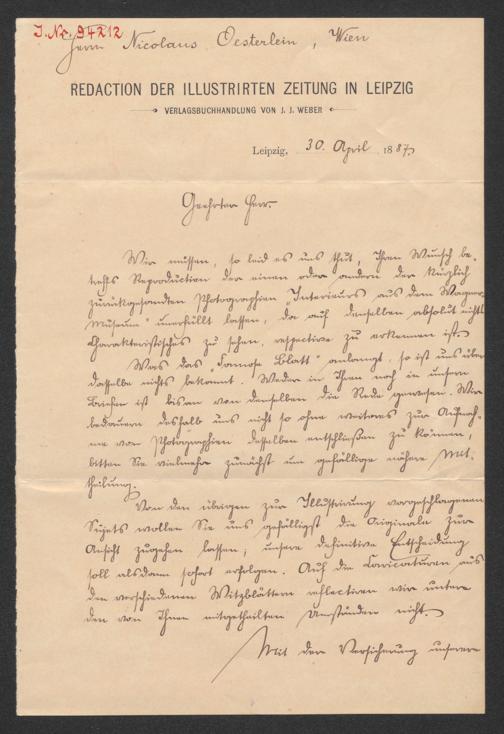 J. Nr. 94212
Herrn Nicolaus Oesterlein, Wien
REDACTION DER ILLUSTRIRTEN ZEITUNG IN LEIPZIG
VERLAGSBUCHHANDLUNG VON J. J. WEBER
Leipzig, 30. April 1887
Geehrter Herr.
Wir müssen, so leid es uns thut, Ihren Wunsch be-
treffs Reproduction der einen oder andern der kürzlich
zurückgesandten Photographien „Interieurs aus dem Wagner-
Museum" unerfüllt lassen, da auf denselben absolut nichts
Charakteristisches zu sehen, respective zu erkennen ist.
Was das „Famose Blatt" anlangt, so ist uns über
dasselbe nichts bekannt. Weder in Ihren noch in unsern
Briefen ist bisher von demselben die Rede gewesen. Wir
bedauern deshalb uns nicht so ohne weiteres zur Aufnah-
me von Photographien desselben entschließen zu können,
bitten Sie vielmehr zunächst um gefällige nähere Mit-
theilung.
Von den übrigen zur Illustrirung vorgeschlagenen
Sujets wollen Sie uns gefälligst die Originale zur
Ansicht zugehen lassen; unsere definitive Entscheidung
soll alsdann sofort erfolgen. Auf die Caricaturen aus
den verschiedenen Witzblättern reflectiren wir unter
den von Ihnen mitgetheilten Umständen nicht.
Mit der Versicherung unserer